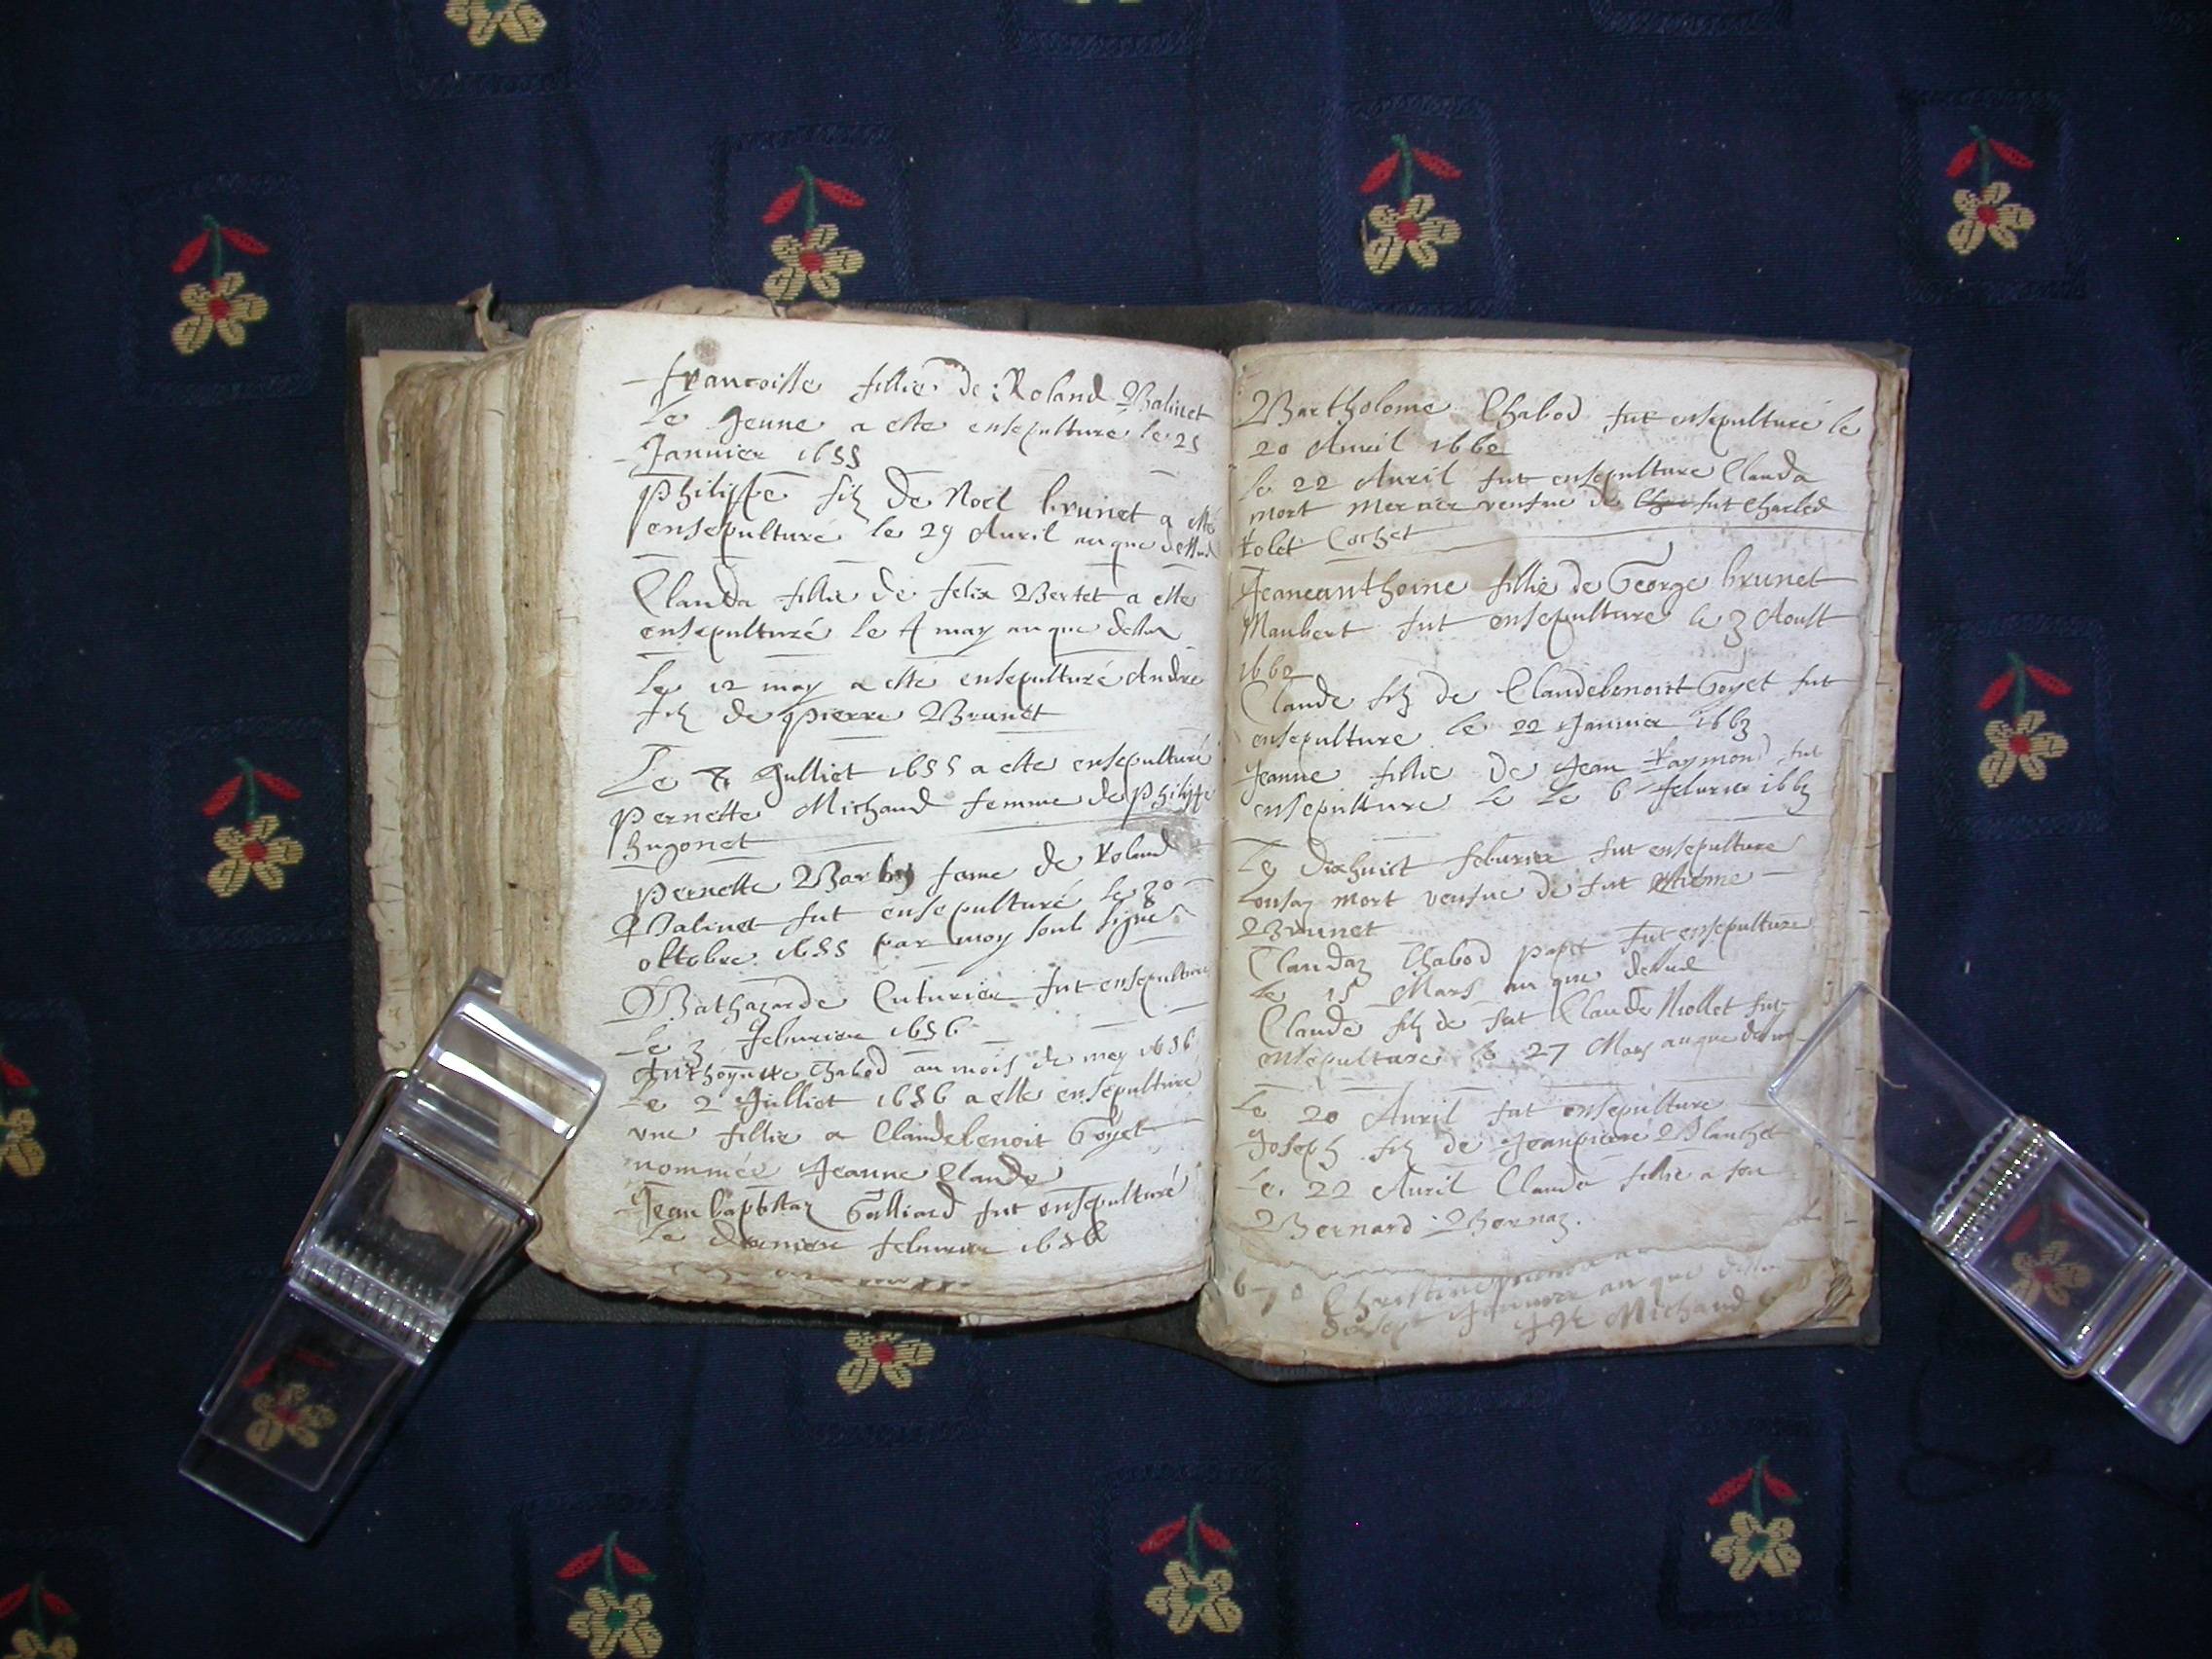 francoisse fillie de Roland Balinet
Le Jeune a este ensepulture le 25
Januier 1655
Philippe filz de Noel brunet a esté
ensepulturé le 29 Auril an que dessus
Clauda fillie de felix Bertet a este
ensepulturé le 4 may an que dessus
Le 12 may a esté ensepulturé Andre
filz de pierre Brunet
Le Julliet 1655 a este ensepulturé
Pernette Michaud femme de Philippe
hugonet
Pernette Barby fame de Roland
Balinet fut ensepulturé le 30
oktobre 1655 par moy soub signe
Bathazarde Cuturier fut ensepulture
Le 3 feburier 1656
Anthoynette Chabod au mois de may 1656
Le 2 Julliet 1656 a este ensepulture
vne fillie a Claudebenoit Goyet
nommée Jeanne Claude
Jean baptistaz Galliard fut ensepulturé
le dernier feburier 1656
Bartholome Chabod fut ensepulturé le
20 Auril 1662
le 22 Auril fut ensepulture Clauda
mort Mercier venfue de fut Charles
Rolet Cochet
Jeaneanthoine fillie de George brunet
Maubert fut ensepulture le 3 Aoust
1662
Claude filz de Claudebenoist Goyet fut
ensepulture le 22 Januier 1663
Jeanne fillie de Jean Raymond fut
ensepulture le Le 6 feburier 1663
Le dixhuict feburier fut ensepulture
Lonsaz mort venfue de fut
Brunet
Claudaz Chabod papet fut ensepulture
Le 15 Mars an que dessus
Claude filz de fut Claude Niollet fut
ensepulture le 27 Mars an que dessus
Le 20 Auril fut ensepulture
Joseph filz de Jeanpierre Blanchet
Le 22 Auril Clauda fillie a feu
Bernard Bornaz.
Christine
dixsept Januier an que dessus
Michaud